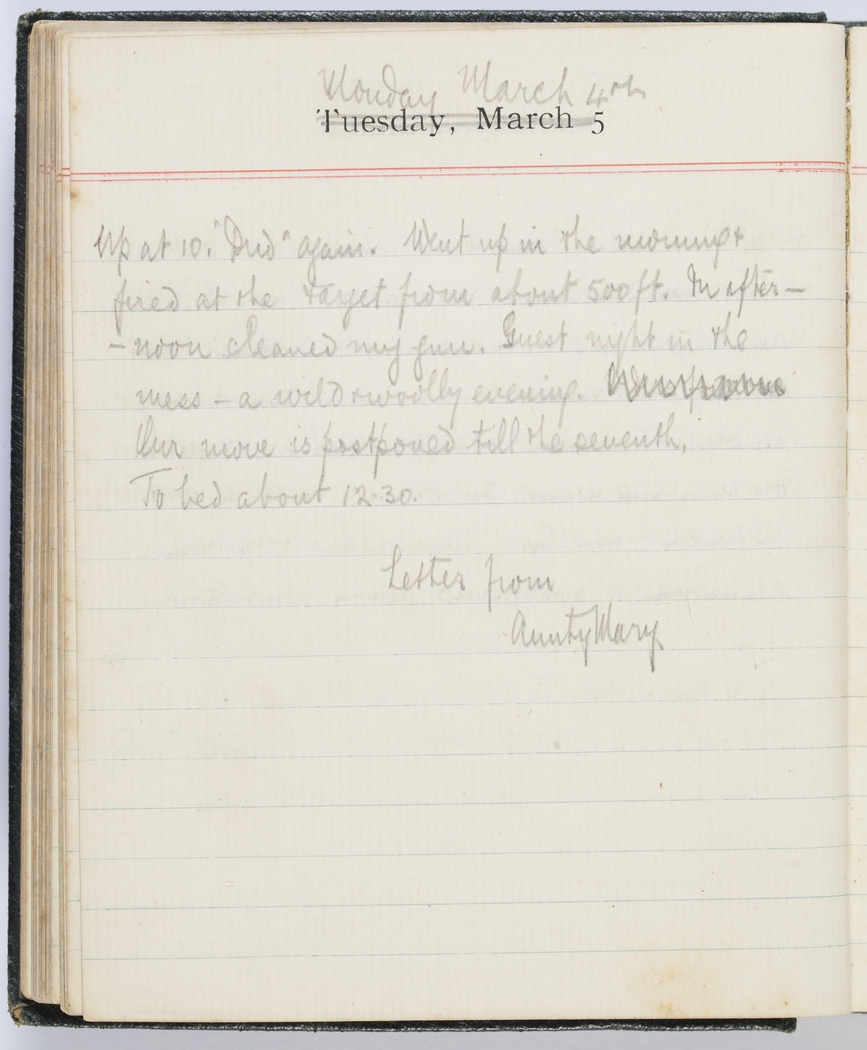 Monday March 4th
Tuesday, March 5
Up at 10. "Dud" again. Went up in the morning &
fired at the target from about 500 ft. In after-
-noon cleaned my gun. Guest night in the
mess - a wild & woolly evening.
Our move is postponed till the seventh.
To bed about 12.30.
Letter from
Aunty Mary